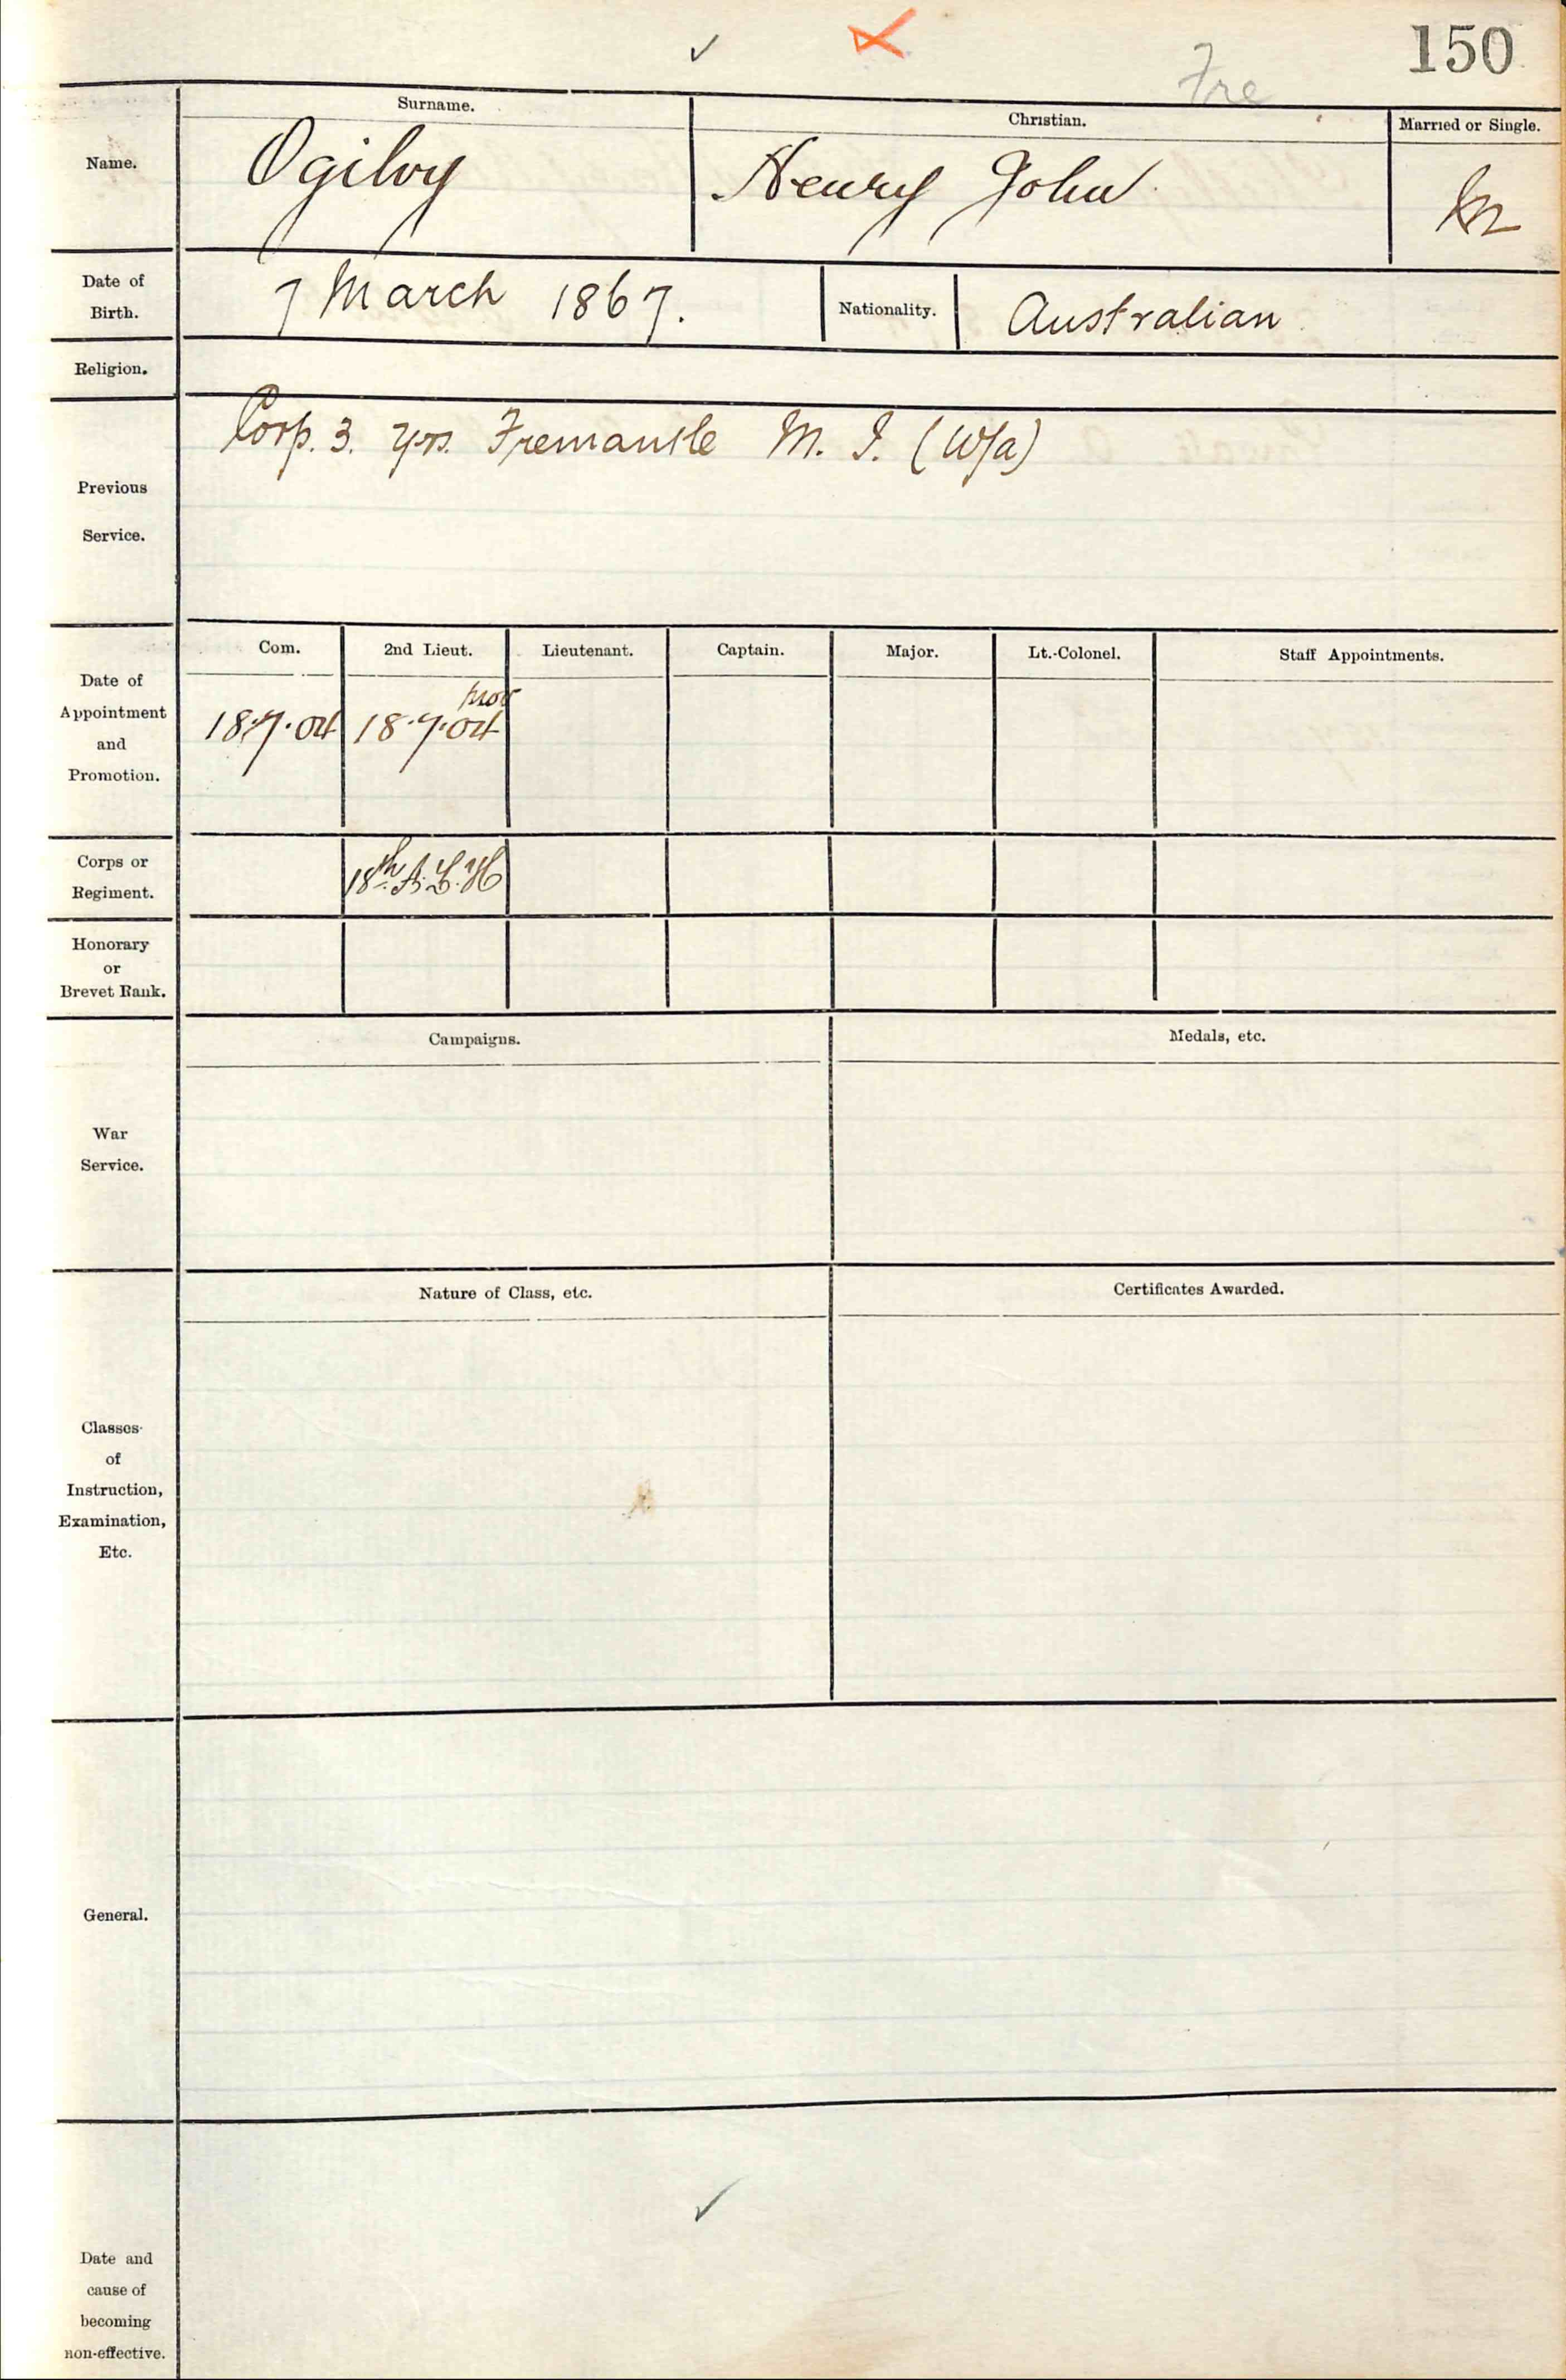 150
Fre
Surname.
Christian.
Married or Single.
Name.
Ogilvy
Henry John
M
Date of
Birth.
7 March 1867.
Nationality.
Australian
Religion.
Corp. 3. yrs. Fremantle M. I. (W/a)
Previous
Service.
Com.
2nd Lieut.
Lieutenant.
Captain.
Major.
Lt.-Colonel.
Staff Appointments.
Date of
Appointment
and
Promotion.
18.7.04
18.7.04
Corps or
Regiment.
18th A.L.H
Honorary
or
Brevet Rank.
Campaigns.
Medals, etc.
War
Service.
Nature of Class, etc.
Certificates Awarded.
Classes
of
Instruction,
Examination,
Etc.
General.
Date and
cause of
becoming
non-effective.